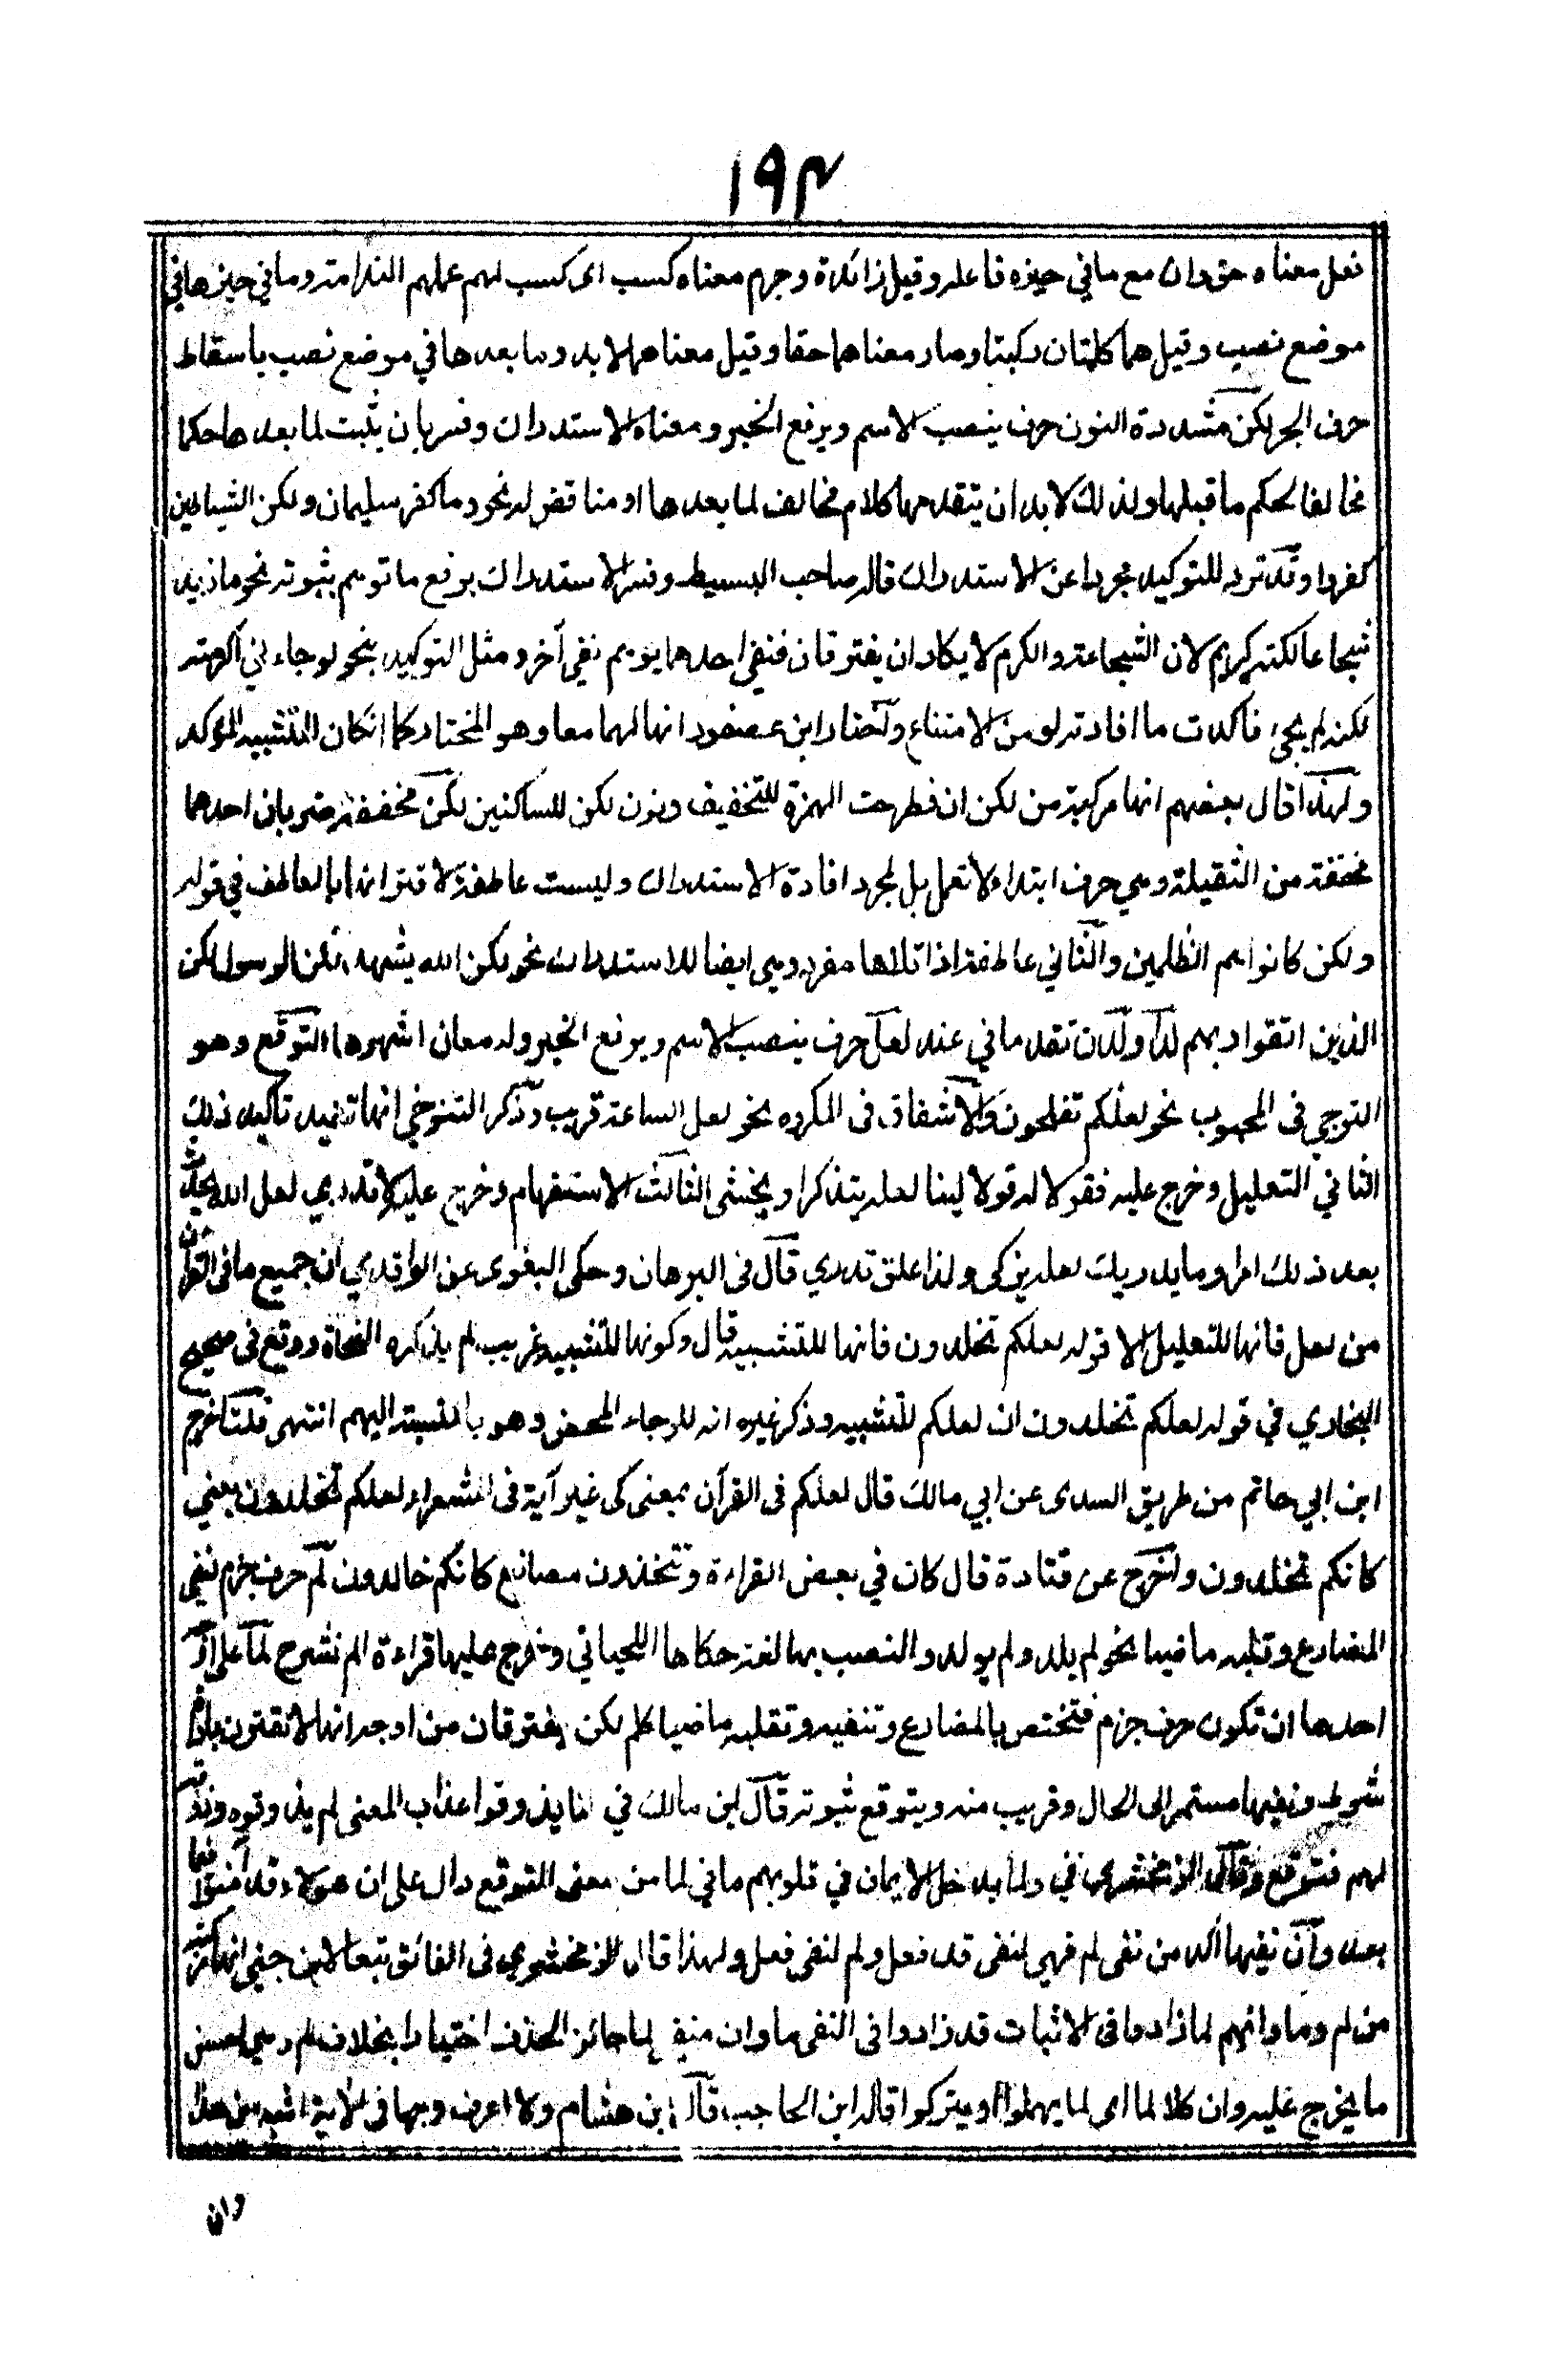 ١٩٤
فعل معناه حق وان مع ما في حيزه فاعله وقيل زائدة وجرم معناه كسب اى كسب لهم عملهم الندامة وما في حيزها في
موضع نصب وقيل هما كلمتان ركبتا وصار معناهما حقا وقيل معناهما لابد وما بعدها في موضع نصب باسقاط
حرف الجر لكن مشددة النون حرف ينصب الاسم ويرفع الخبر ومعناه الاستدراك وفسر بان يثبت لما بعدها حكما
مخالفا لحكم ما قبلها ولذلك لابد ان يتقدمها كلام مخالف لما بعدها او مناقض له نحو وما كفر سليمان ولكن الشياطين
كفروا وقد ترد للتوكيد مجردا عن الاستدراك قاله صاحب البسيط وفسر الاستدراك برفع ما توهم ثبوته نحو ما زيد
شجاعا لكنه كريم لان الشجاعة والكرم لا يكادان يفترقان فنفى احدهما يوهم نفي آخر ومثل التوكيد بنحو لو جاءني اكرمته
لكنه لم يجئ فاكدت ما افادته لو من الامتناع واختار ابن عصفور انها لهما معا وهو المختار كما ان كان للتشبيه المؤكد
ولهذا قال بعضهم انها مركبة من لكن ان فطرحت الهمزة للتخفيف ونون لكن للساكنين لكن مخففة ضربان احدهما
مخففة من الثقيلة وهي حرف ابتداء لا تعمل بل لمجرد افادة الاستدراك وليست عاطفة لاقترانها بالعاطف في قوله
ولكن كانوا هم الظلمين والثاني عاطفة اذا تلاها مفرد وهي ايضا للاستدراك نحو لكن الله يشهد، لكن الرسول لكن
الذين اتقوا ربهم لدا ولدن تقدما في عند لعل حرف ينصب الاسم ويرفع الخبر وله معان اشهرها التوقع وهو
الترجي فى المحبوب نحو لعلكم تفلحون والاشفاق فى المكروه نحو لعل الساعة قريب وذكر التنوخي انها تفيد تاكيد ذلك
الثاني التعليل وخرج عليه فقولا له قولا لينا لعله يتذكر او يخشى الثالث الاستفهام وخرج عليه لا تدري لعل الله يحدث
بعد ذلك امرا وما يدريك لعله يزكى ولذا علق تدري قال فى البرهان وحكى البغوى عن الواقدي ان جميع ما فى القرآن
من لعل فانها للتعليل الا قوله لعلكم تخلدون فانها للتشبيه قال وكونها للتشبيه غريب لم يذكره النحاة ووقع فى صحيح
البخاري في قوله لعلكم تخلدون ان لعلكم للتشبيه وذكر غيره انه للرجاء المحض وهو بالنسبة اليهم انتهى قلت اخرج
ابن ابي حاتم من طريق السدى عن ابي مالك قال لعلكم فى القرآن بمعنى كى غير آية فى الشعراء لعلكم تخلدون يعنى
كانكم تخلدون واخرج عن قتادة قال كان في بعض القراءة وتتخذون مصانع كانكم خالدون لم حرف جزم لنفى
المضارع وقلبه ماضيا نحو لم يلد ولم يولد والنصب بها لغة حكاها اللحياني وخرج عليها قراءة الم نشرح لما على اوجه
احدها ان تكون حرف جزم فتختص بالمضارع وتنفيه وتقلبه ماضيا كلم لكن يفترقان من اوجه انها لا تقترن باداة
شرط ونفيها مستمر الى الحال وقريب منه ويتوقع ثبوته قال ابن مالك في لما يذوقوا عذاب المعنى لم يذوقوه وذوقه
لهم متوقع وقال الزمخشري في ولما يدخل الايمان في قلوبهم ما في لما من معنى التوقع دال على ان هولاء قد آمنوا فيما
بعد وآن نفيها آكد من نفى لم فهي لنفى قد فعل ولم لنفى فعل ولهذا قال الزمخشري فى الفائق تبعا لابن جني انها مركبة
من لم وما وانهم لما زادوا فى الاثبات قد زادوا فى النفى ما وان منفى لما جائز الحذف اختيارا بخلاف لم وهي احسن
ما يخرج عليه وان كلا لما اى لما يهملوا او يتركوا قاله ابن الحاجب قال ابن هشام ولا اعرف وجها فى الآية اشبه من هذا
وان